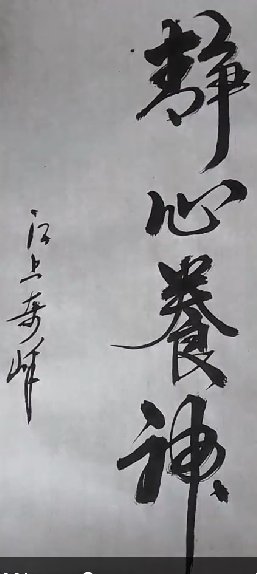 静心養神
江上奇峰